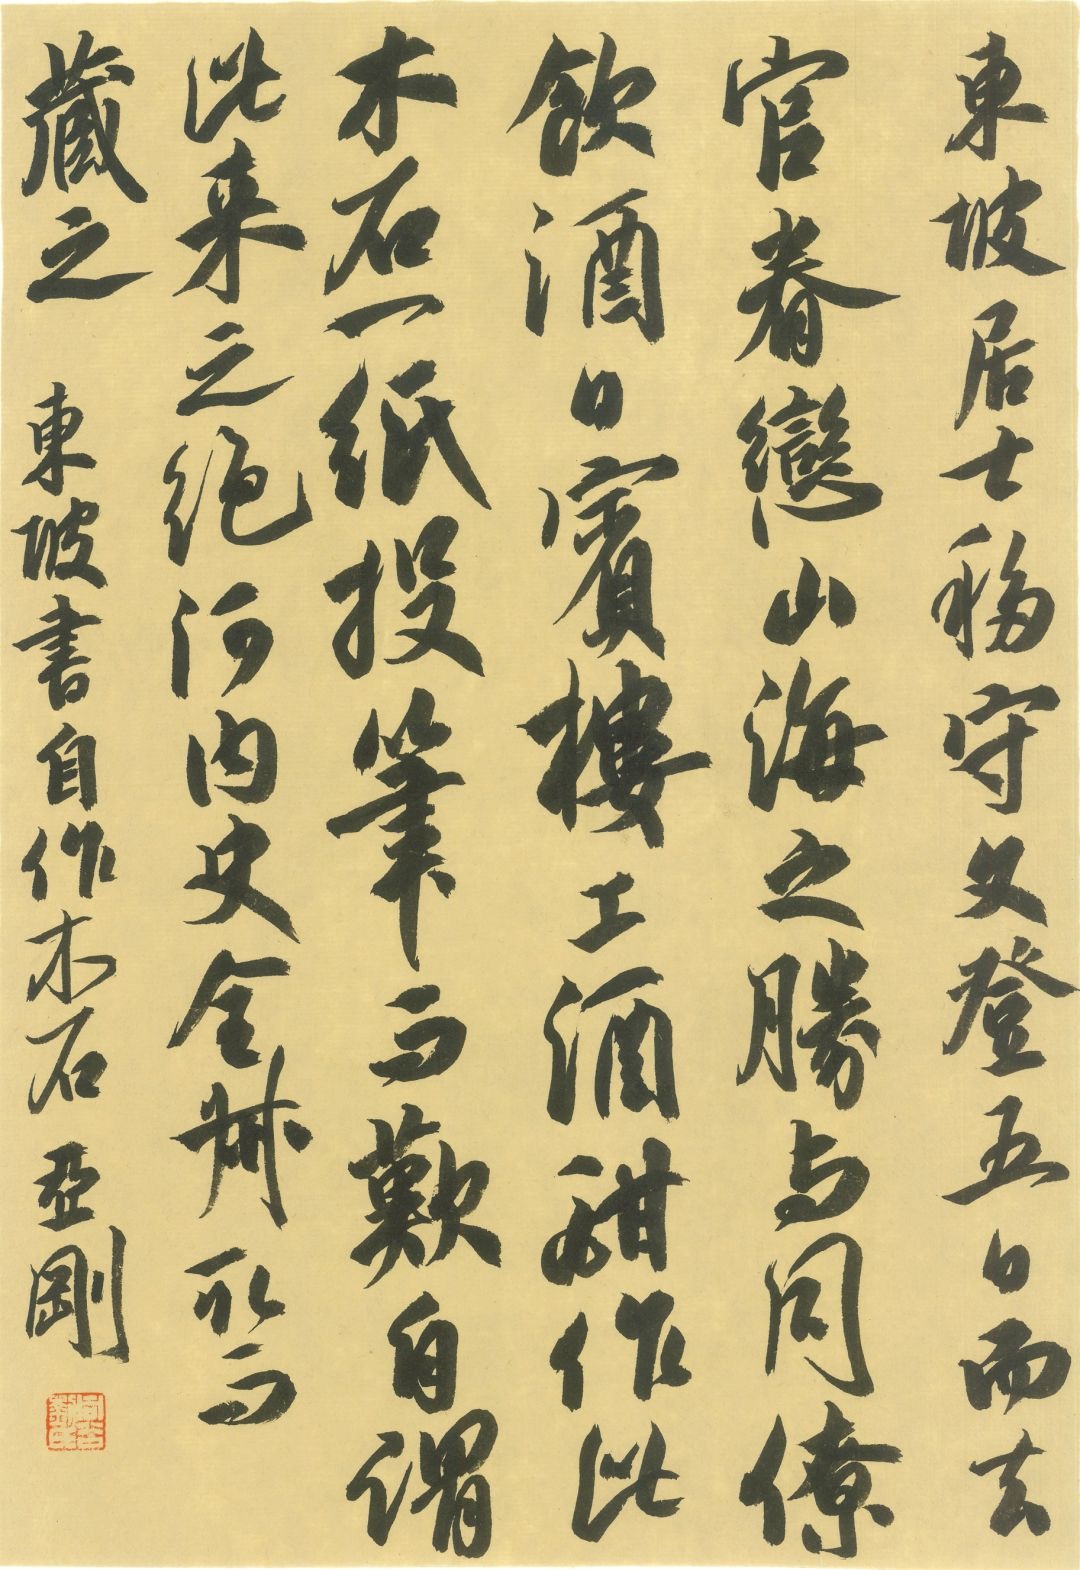 東坡居士移守文登五日而去
官眷戀山海之勝与同僚
飲酒日賓樓上酒酣作此
木石一紙投筆而歎自謂
此来之絕河内史全叔取而
藏之 東坡書自作木石 亞剛